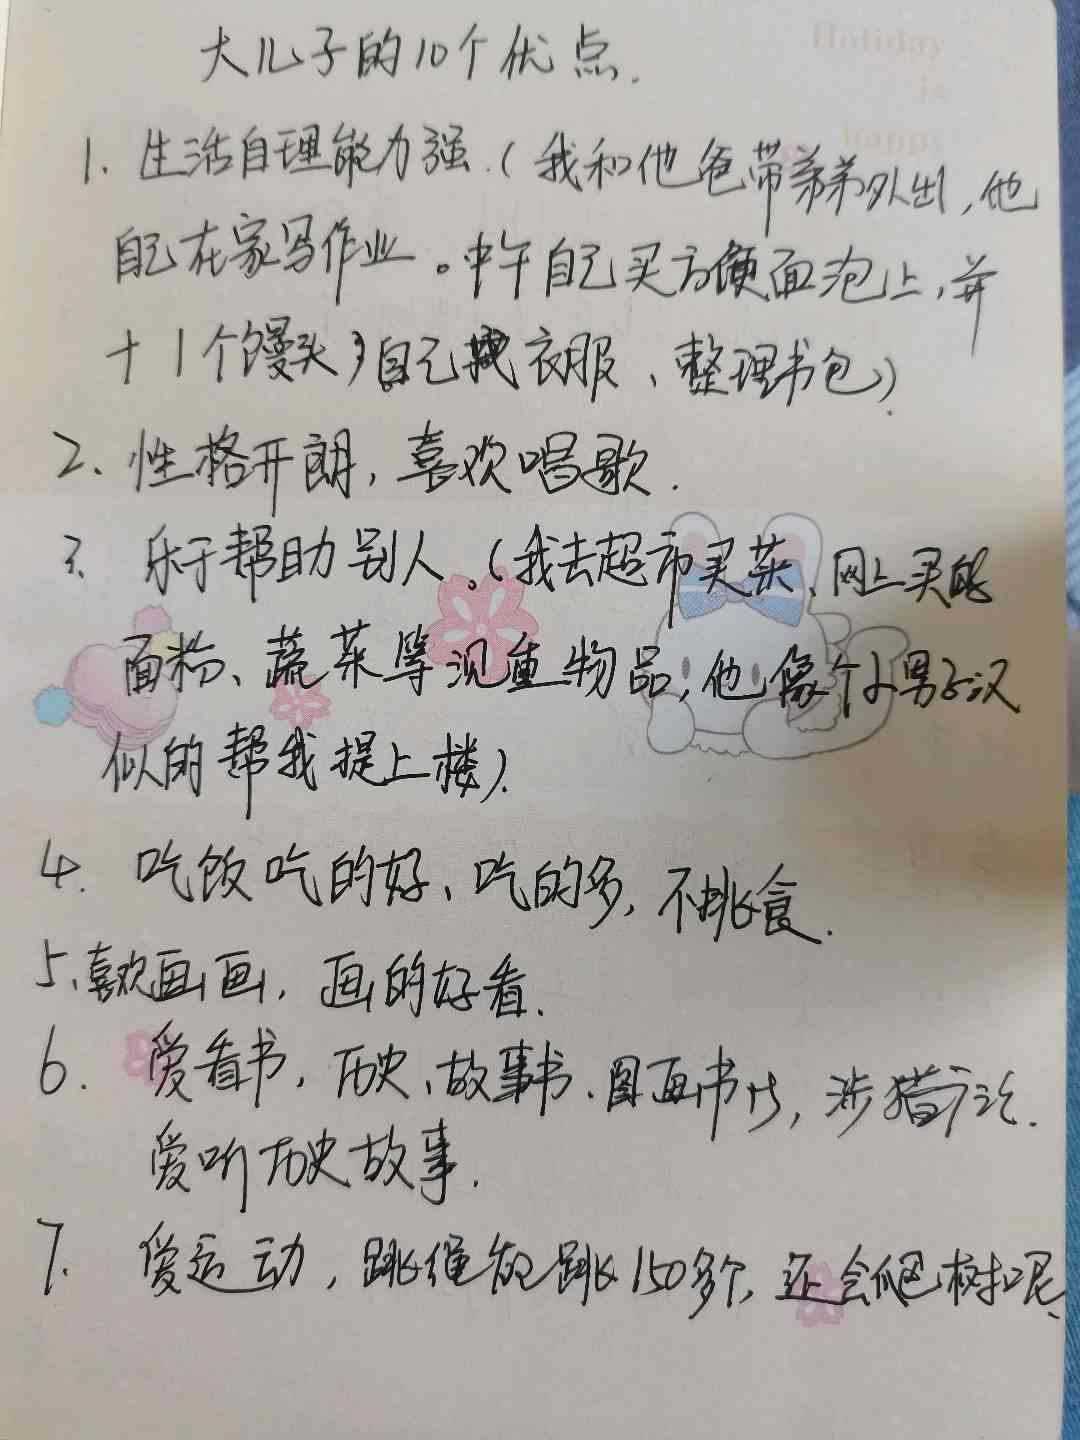 Holiday
is
happy
大儿子的10个优点.
1. 生活自理能力强.(我和他爸带弟弟外出,他
自己在家写作业。中午自己买方便面泡上,并
十1个馒头,自己找衣服、整理书包).
2、性格开朗,喜欢唱歌.
3. 乐于帮助别人。(我去超市买菜、网上买的
面粉、蔬菜等沉重物品,他像个小男子汉
似的帮我提上楼).
4. 吃饭吃的好、吃的多,不挑食.
5、喜欢画画,画的好看.
6. 爱看书,历史、故事书、图画书等,涉猎广泛.
爱听历史故事.
7. 爱运动,跳绳能跳150多个,还会爬树呢.